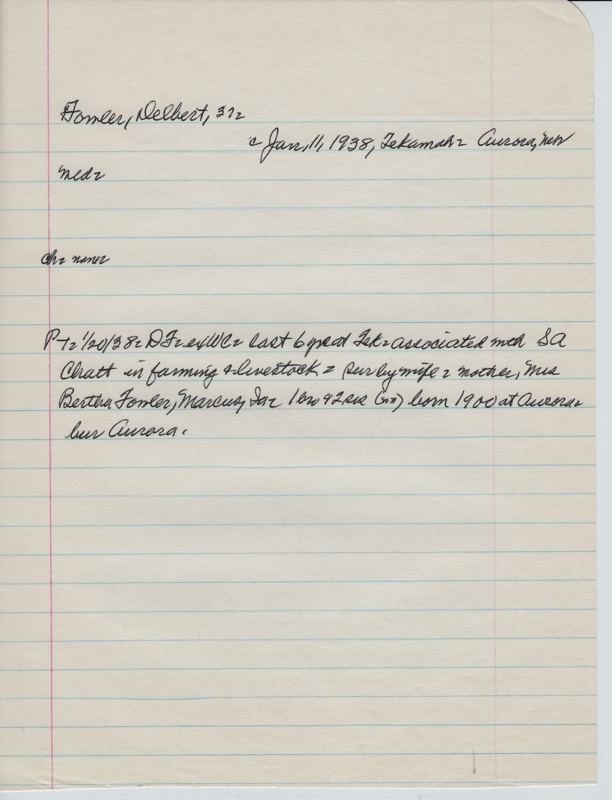 Fowler, Delbert, 37=
c Jan, 11, 1938, Tekamah = Aurora, Neb
Med=
Ch= none=
P 7= 1/20/38= DF= ex WC= last 6 yrs at Tek= associated with SA
Chatt in farming & livestock = sur by wife = mother, Mrs
Bertha Fowler, Marcus, Ia= 1 bro & 2 sis born 1900 at Aurora=
bur Aurora.